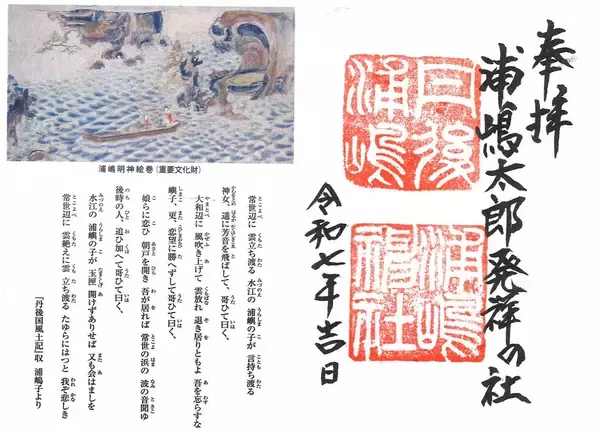 奉拝
浦嶋太郎発祥の社
丹後
浦嶋
浦嶋
神社
令和七年吉日
浦嶋明神絵巻（重要文化財）
常世辺に 雲立ち渡る 水江の 浦嶼の子が 言持ち渡る
神女、遥に芳音を飛ばして、哥ひて曰く、
大和辺に 風吹き上げて 雲放れ 退き居りともよ 吾を忘らすな
嶼子、更、恋望に勝へずして哥ひて曰く、
娘らに恋ひ 朝戸を開き 吾が居れば 常世の浜の 波の音聞ゆ
後時の人、追ひ加へて哥ひて曰く、
水江の 浦嶼の子が 玉匣 開けずありせば 又も会はましを
常世辺に 雲立ち渡る たゆらにはつと 我ぞ悲しき
『丹後国風土記』収 浦嶋子より